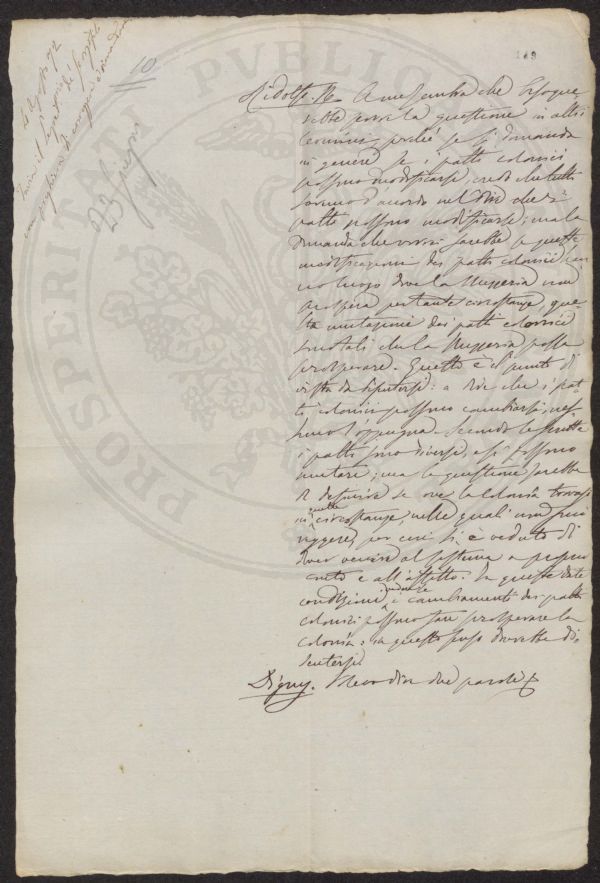 4 Agosto 72
10
149
Ridolfi N. A me sembra che bisogne-
rebbe porre la questione in altri
termini, perché se si domanda
in genere se i patti colonici
possono modificarsi, credo che tutti
saremo d'accordo nel dire che i
patti possono modificarsi; ma la
domanda che vorrei sarebbe se queste
modificazioni dei patti colonici, in
un luogo dove la Mezzeria non
prospera per tante circostanze, que-
sta mutazione dei patti colonici
sia tale che la Mezzeria possa
prosperare. Questo è il punto di
vista da discutersi: a dire che i pat-
ti colonici possono cambiarsi, nes-
suno l'oppugna. Secondo le
i patti sono diversi, e si possono
mutare; ma la questione sarebbe
di definire se ove la Colonia trovasi
in quelle circostanze, nelle quali non può
reggere, per cui si è veduto di
dover venire al sistema a
e all'affitto. In queste date
condizioni i cambiamenti dei patti
colonici possono fare prosperare la
colonia: in questo senso dovrebbe di-
scutersi.
Digny. due parole
PROSPERITATI PUBLICAE